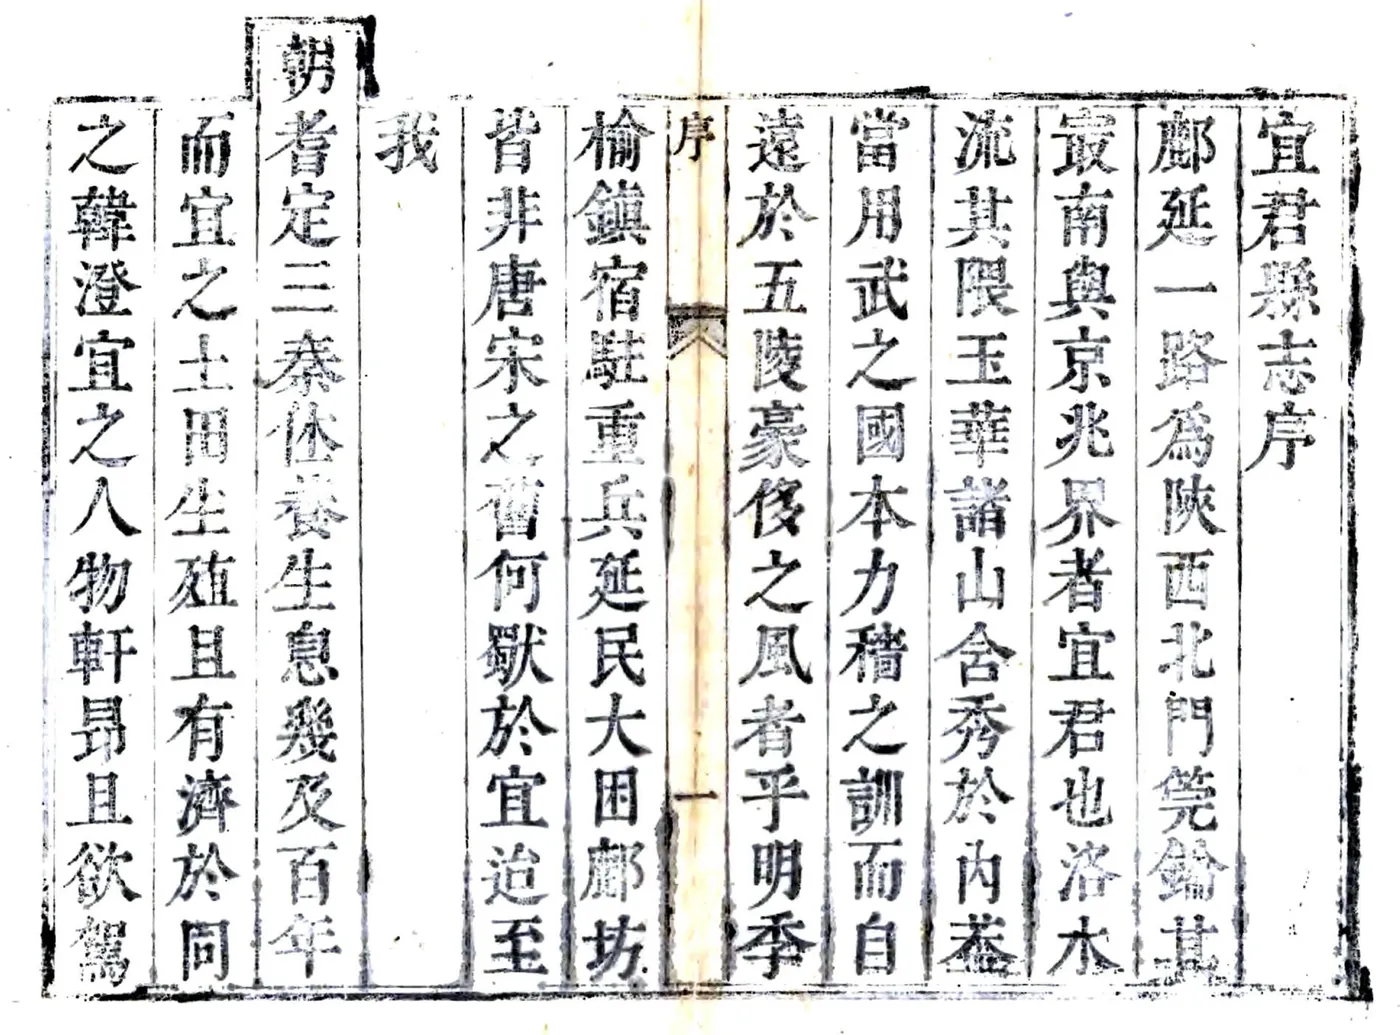 宜君縣志序
鄜延一路為陝西北門筦鑰其
最南與京兆界者宜君也洛水
流其隈玉華諸山含秀於內蓋
當用武之國本力穡之訓而自
遠於五陵豪侈之風者乎明季
序
一
榆鎮宿駐重兵延民大困鄜坊
皆非唐宋之舊何獸於宜迨至
我
朝耆定三秦休養生息幾及百年
而宜之土田生殖且有濟於同
之韓澄宜之人物軒昂且欲駕